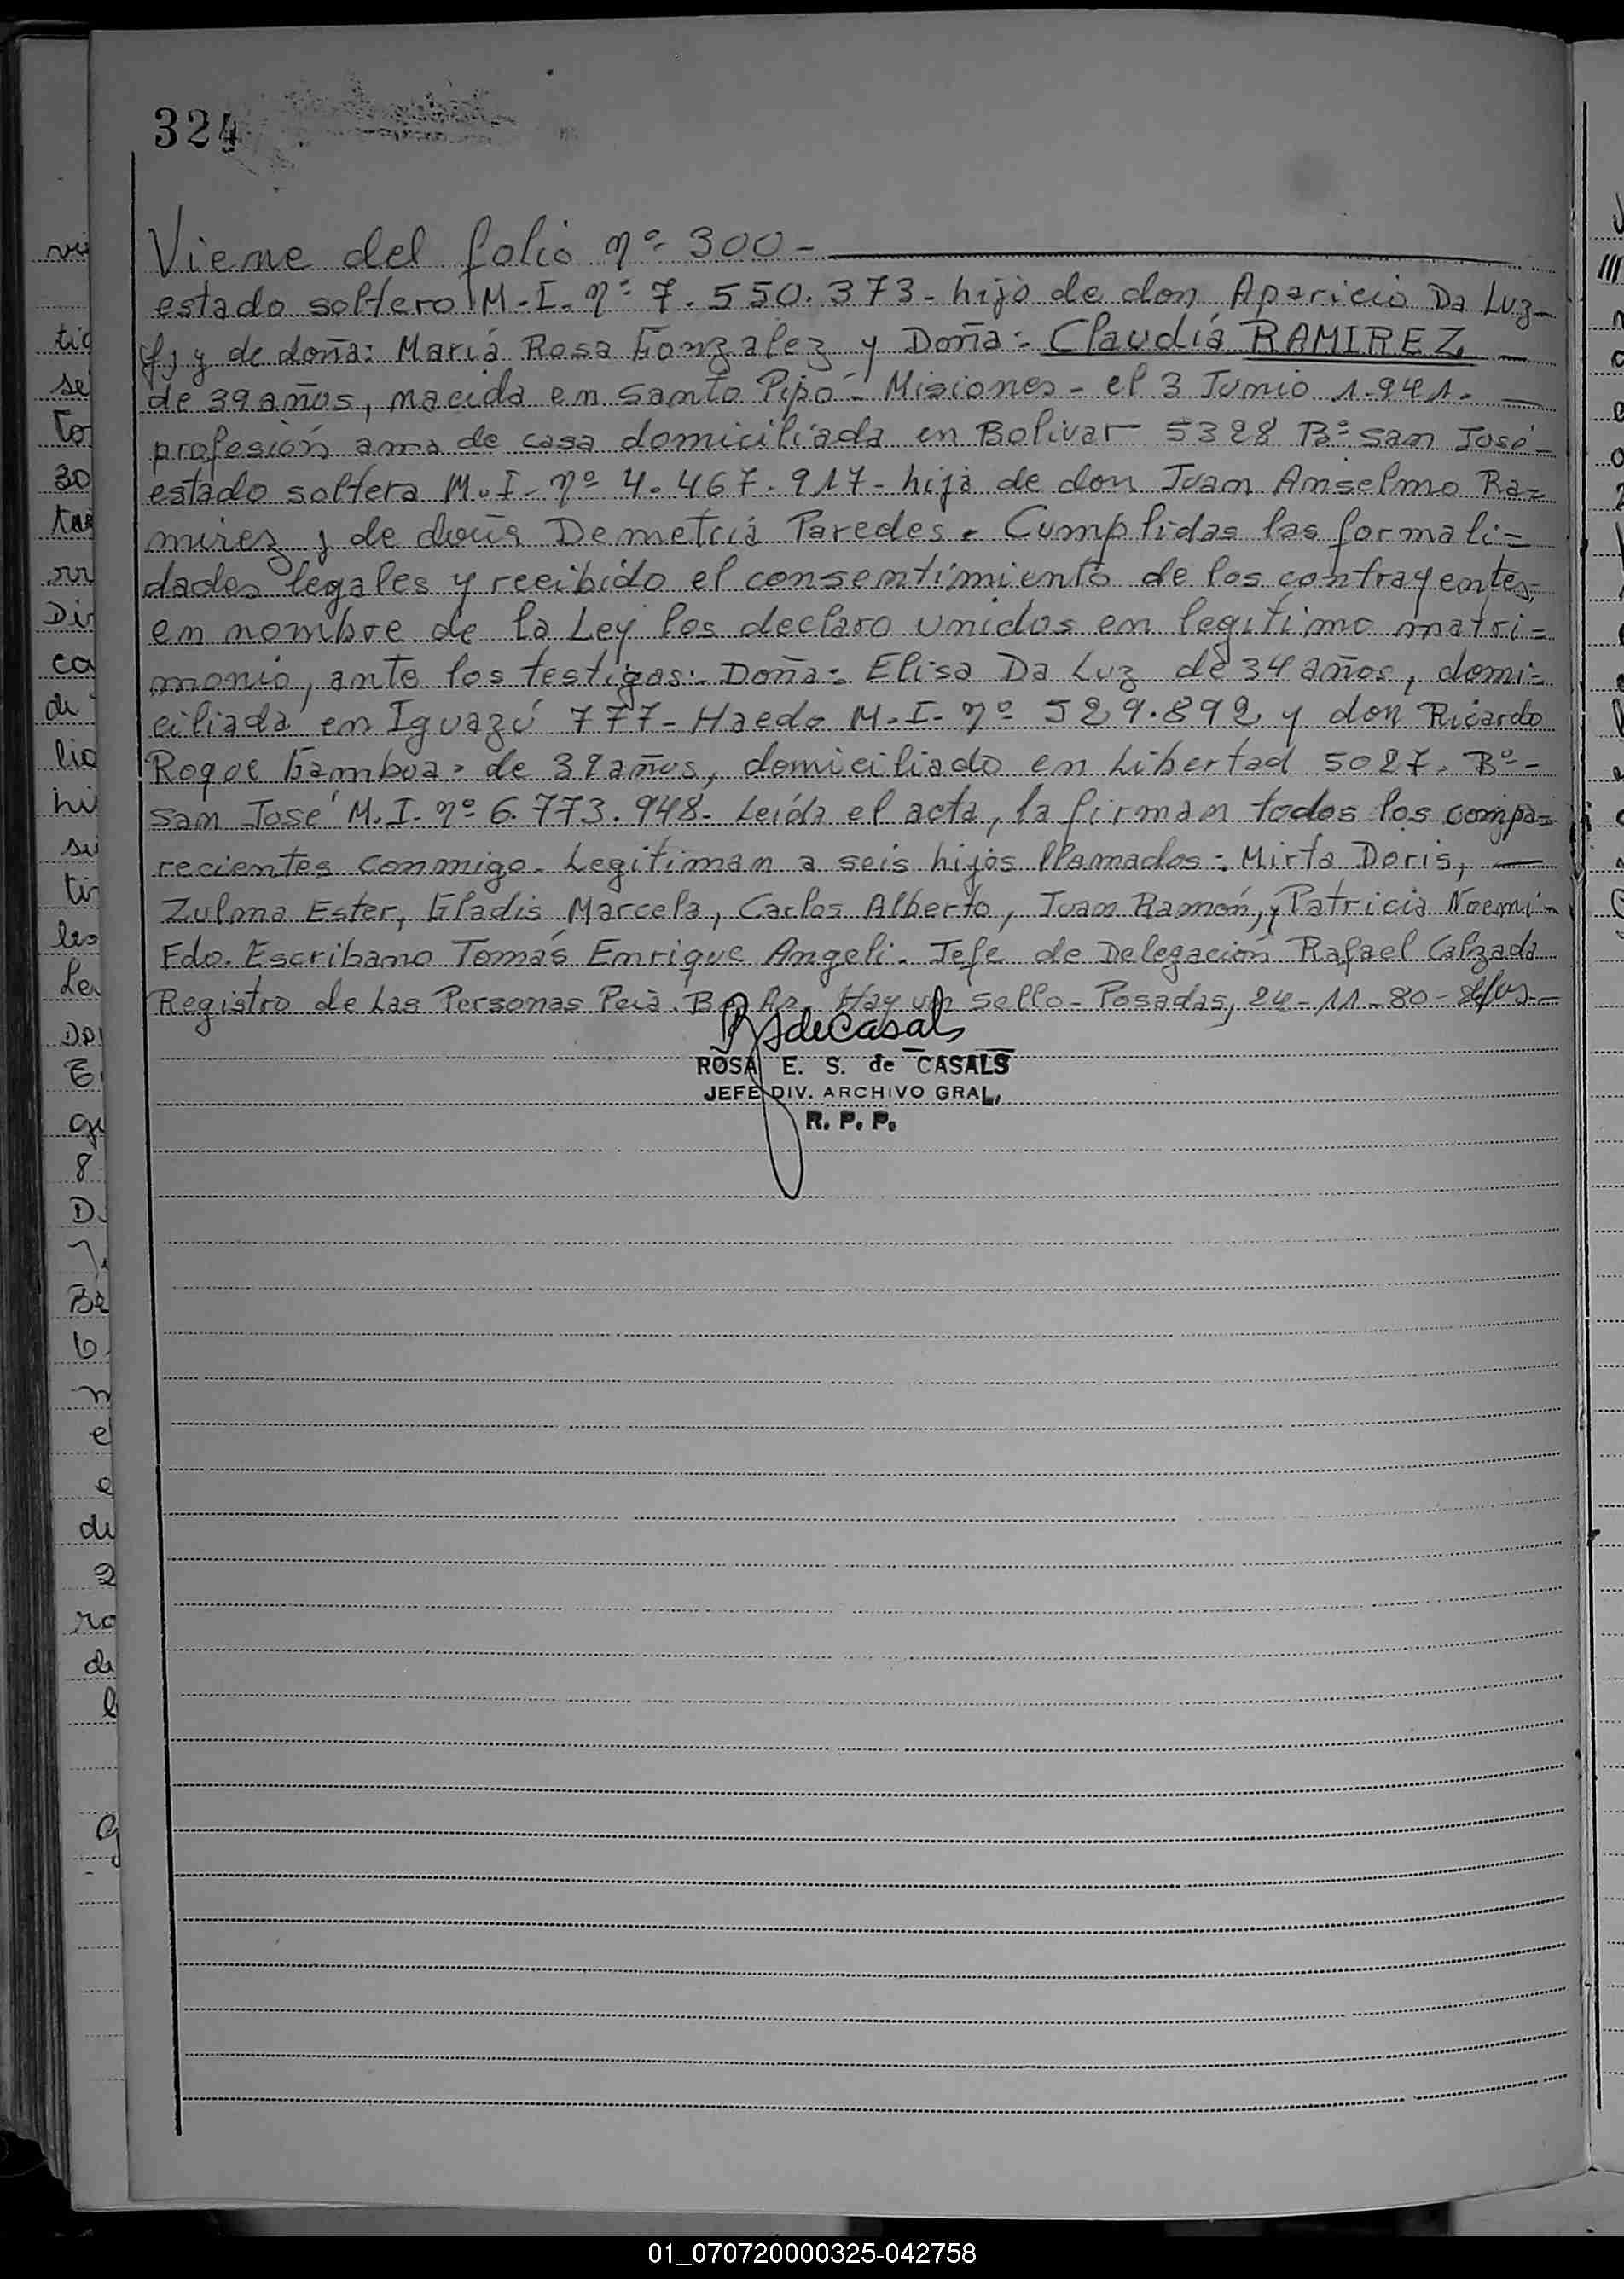 324
Viene del folio nº 300-
estado soltero M.I. nº 7.550.373- hijo de don Aparicio Da Luz-
(f) y de doña: María Rosa Gonzalez y Doña: Claudia RAMIREZ
de 39 años, nacida en Santo Pipó- Misiones- el 3 Junio 1.941.
profesión ama de casa domiciliada en Bolivar 5328 Bº San José-
estado soltera M.I. nº 4.467.917- hija de don Juan Anselmo Ra=
mirez y de doña Demetria Paredes. Cumplidas las formali=
dades legales y recibido el consentimiento de los contrayentes,
en nombre de la Ley los declaro unidos en legítimo matri=
monio, ante los testigos: Doña: Elisa Da Luz de 34 años, domi=
ciliada en Iguazú 777- Haedo M.I. nº 529.892 y don Ricardo
Roque Gamboa de 32 años, domiciliado en Libertad 5027. Bº-
San José M.I. nº 6.773.948. Leída el acta, la firman todos los compa=
recientes conmigo. Legitiman a seis hijos llamados: Mirta Doris,
Zulma Ester, Gladis Marcela, Carlos Alberto, Juan Ramón, y Patricia Noemí-
Fdo. Escribano Tomás Enrique Angeli. Jefe de Delegación Rafael Calzada
Registro de Las Personas Pcia. Bs. As. Hay un sello- Posadas, 24-11-80-
deCasals
ROSA E. S. de CASALS
JEFE DIV. ARCHIVO GRAL.
R. P. P.
01_070720000325-042758